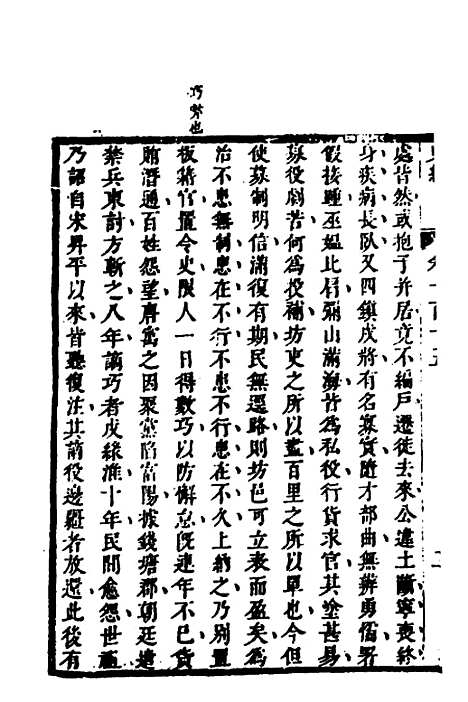 巧弊也
處皆然或抱子幷居竟不編戶遷徙去來公違土斷寧喪終
身疾病長臥又四鎮戍將有名寡實隨才部曲無辨勇懦署
位借給巫媼比肩彌山滿海皆爲私役行貨求官其塗甚易
募役卑劇何爲投補坊吏之所以盡百里之所以單也今但
使募制明信滿復有期民無逕路則坊邑可立表而盈矣爲
治不患無制患在不行不患不行患在不久上納之乃別置
板籍官置令史限人一日得數巧以防懈怠旣連年不已貨
賄潛通百姓怨望唐寓之因聚黨陷富陽據錢塘郡朝廷遣
禁兵東討方斬之八年謫巧者戍緣淮十年民間愈怨世祖
乃詔自宋昇平以來皆聽復注其謫役邊疆者放還此後有